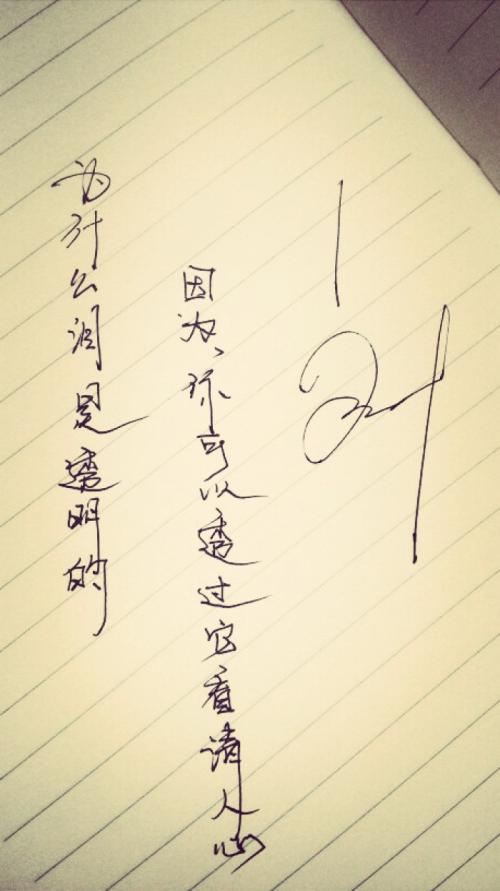 为什么泪是透明的
因为,你可以透过它看请人心